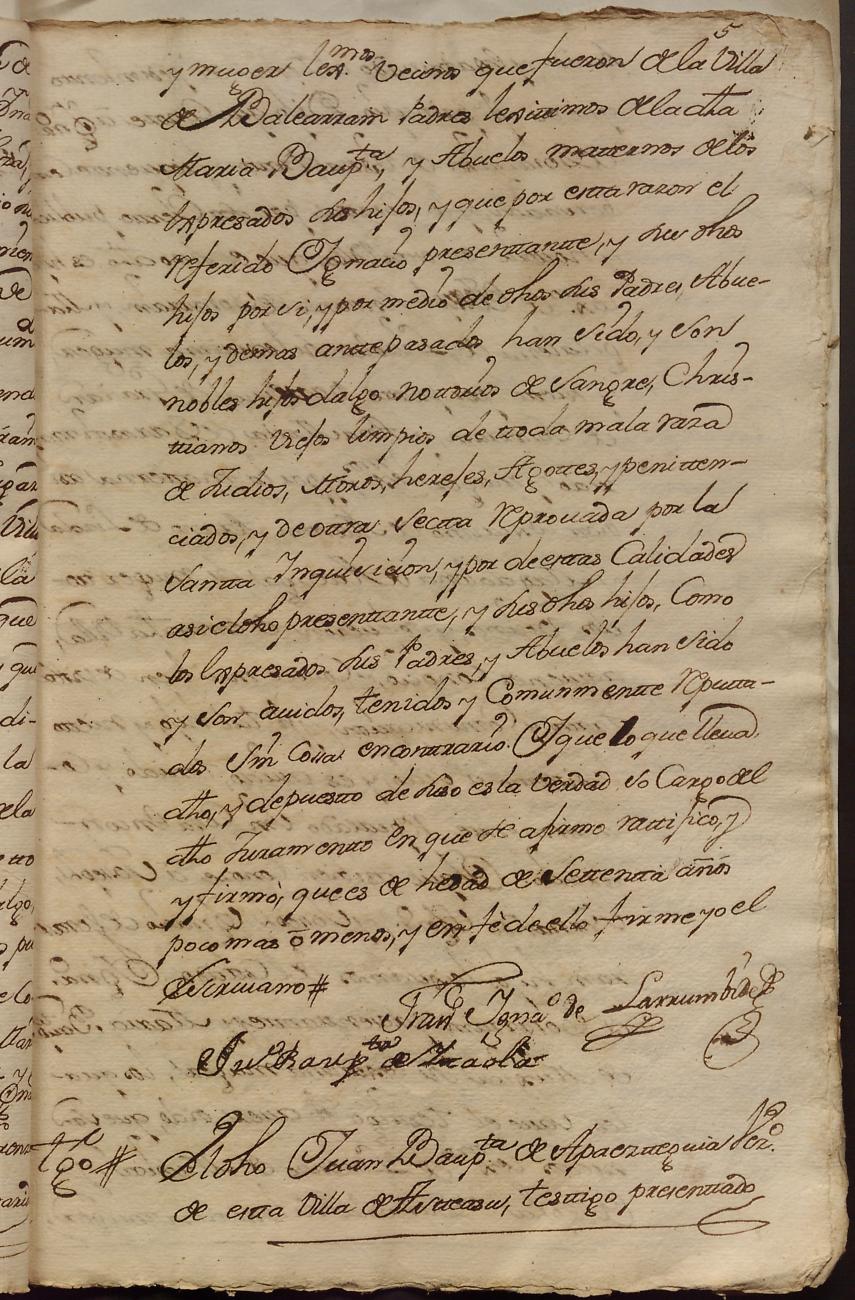 5
y muger lexmos Vecinos que fueron de la Villa
de Balearram Padres lexitimos de la dha
Maria Baupta, y Abuelos matternos de los
Expresados sus hijos, y que por estta razon el
referido Ignacio presenttantte, y sus dhos
hijos por si, y por medio de dhos sus Padres, Abue-
los, y demas anttepasados han sido, y son
nobles hijos dalgo nottorios de Sangre, Chris-
ttianos Viejos limpios de ttoda mala raza
de Judios, Moros, herejes, Agottes, y penitten-
ciados, y de ottra Sectta reprovada por la
Santta Inquisicion, y por de esttas Calidades
asi el dho presenttantte, y sus dhos hijos, Como
los Expresados sus Padres, y Abuelos han sido
y son avidos, tenidos y Comunmentte reputta-
dos sin Cosa en conttrario. Y que lo que lleva
dho, y depuestto de suso es la verdad so Cargo del
dho Juramentto en que se afirmo rattifico, y
y firmó, que es de hedad de Settentta años
poco mas ō menos, y en fé de ello firme yo el
Escrivano #
Franco Ignao de Larrumbide
Juo Baupta de
tgo # El dho Juan Baupta de Apaezttegui Vezo.
de estta Villa de Astteasu, testtigo presenttado